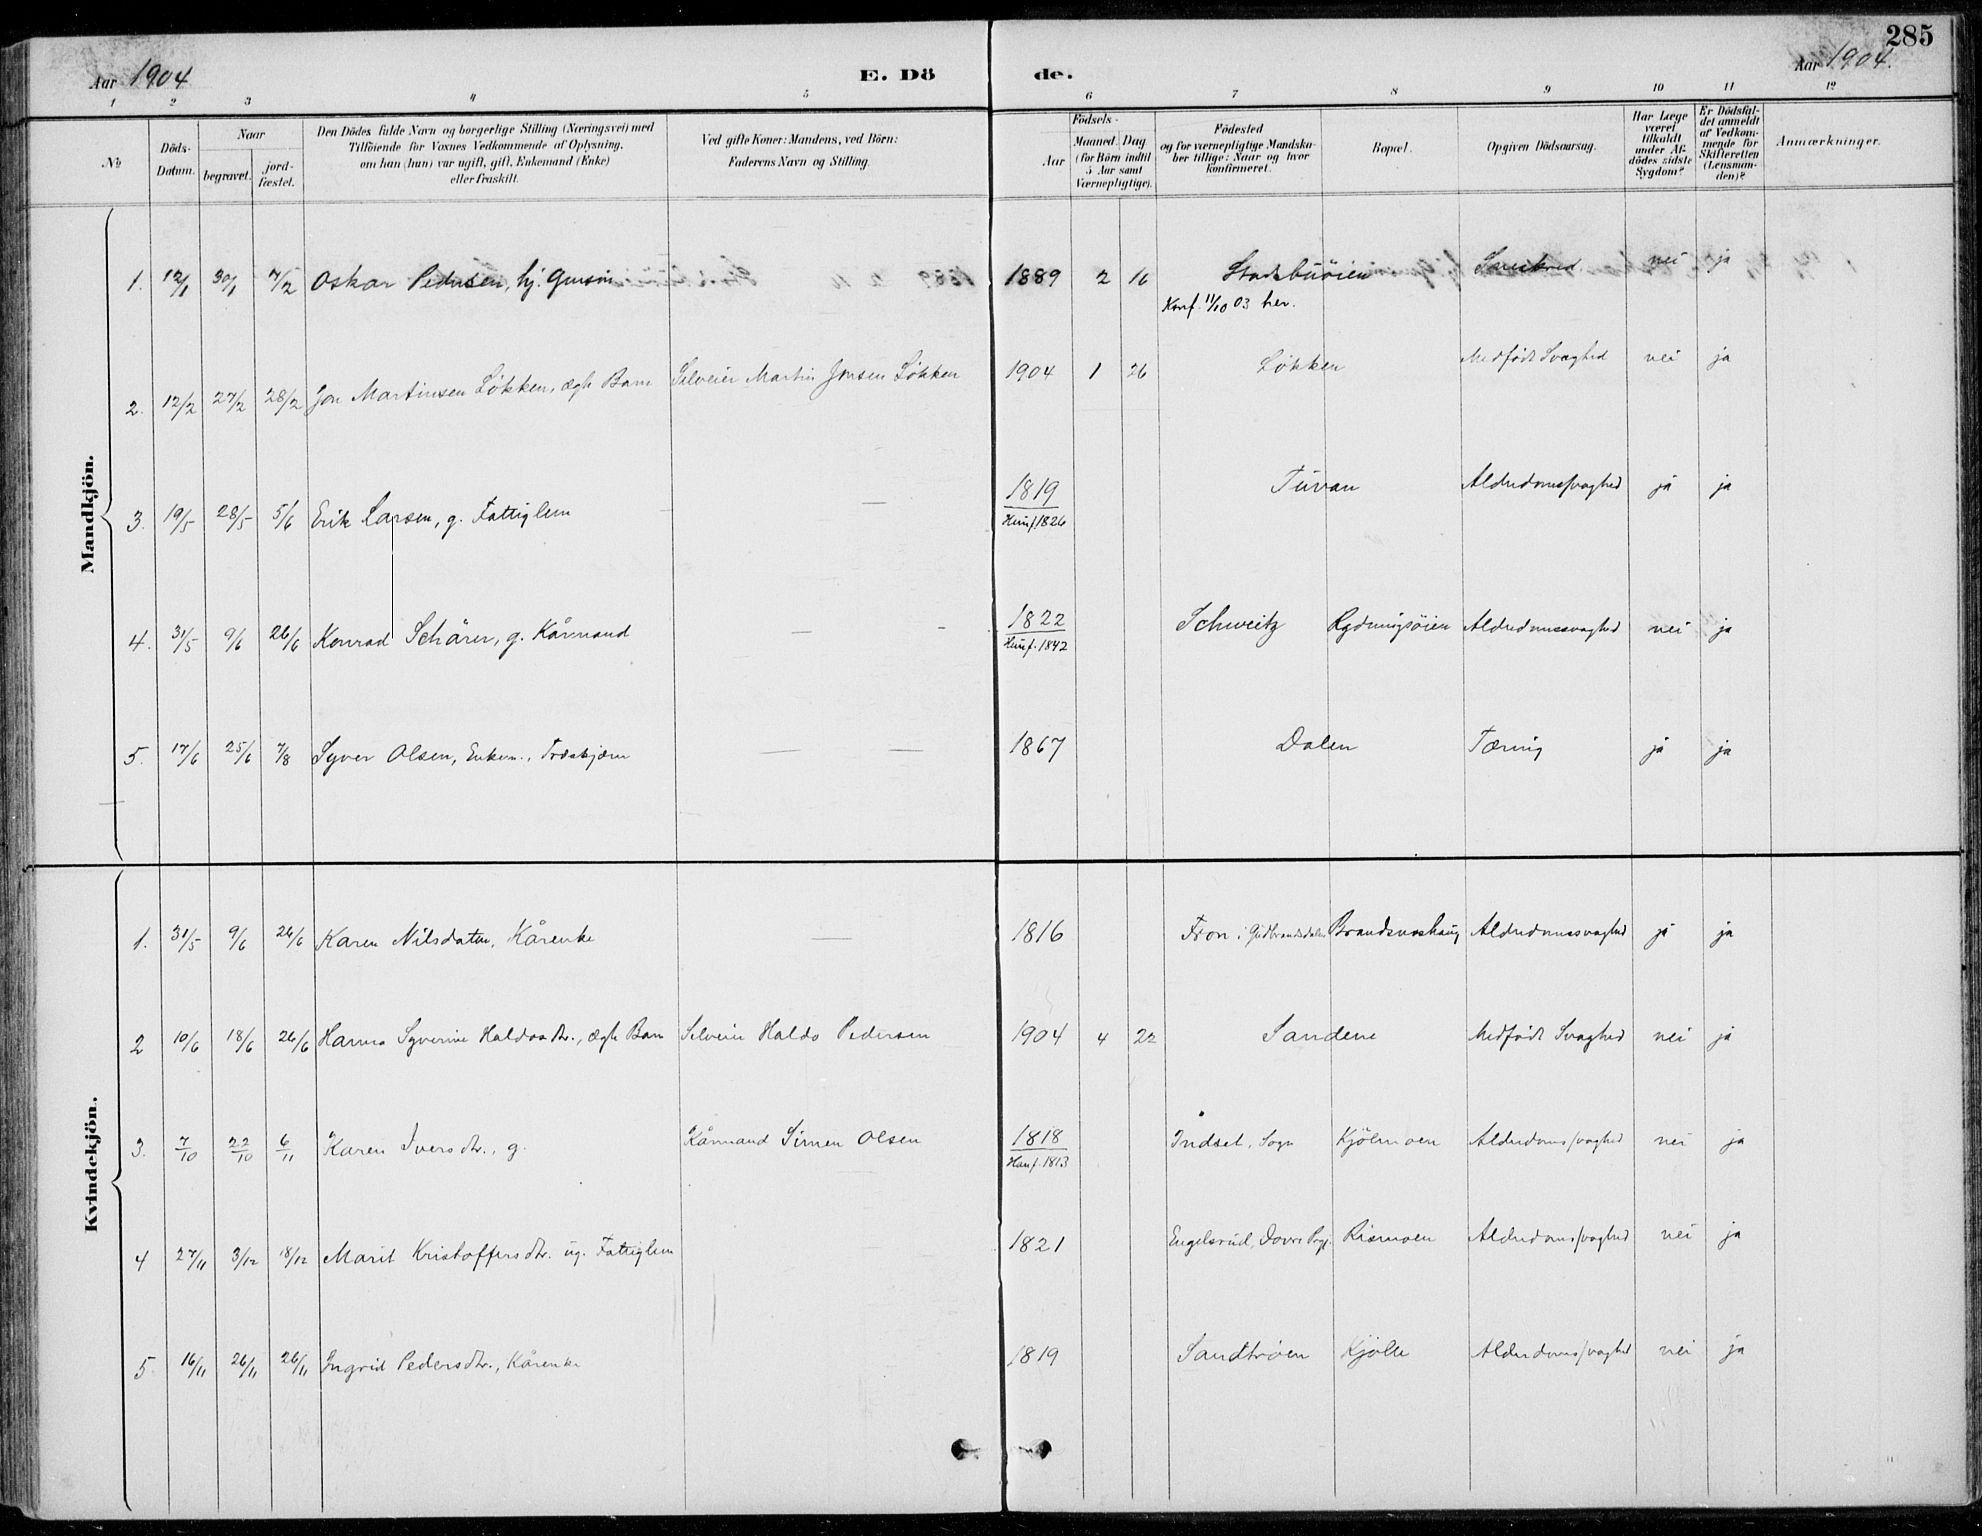 285
Aar 1904
E. Dö
de.
Aar 1904.
1 2 3 4 5 6 7 8 9 10 11 12
No
Döds-Datum.
Naar
begravet.
jord-fæstet.
Den Dödes fulde Navn og borgerlige Stilling (Næringsvei) med
Tilföiende for Voxnes Vedkommende af Oplysning,
om han (hun) var ugift, gift, Enkemand (Enke)
eller fraskilt.
Ved gifte Koner: Mandens, ved Börn:
Faderens Navn og Stilling.
Födsels-
Aar
Maaned. Dag
(for Börn indtil
5 Aar samt
Værnepligtige).
Födested
og for værnepligtige Mandska-
ber tillige: Naar og hvor
konfirmeret.
Bopæl.
Opgiven Dödsaarsag.
Har Læge
været
tilkaldt
under Af-
dödes sidste
Sygdom?
Er Dödsfal-
det anmeldt
af Vedkom-
mende for
Skifteretten
(Lensman-
den)?
Anmærkninger.
Mandkjön.
1. 12/1 30/1 7/2 Oskar Pedersen, hj. 1889 2 16 Stadsbuöien nei ja
Konf. 11/10 03 her.
2. 12/2 27/2 28/2 Jon Martinsen Lökken, ægte Barn Selveier Martin Jonsen Lökken 1904 1 26 Lökken Medfödt Svaghed nei ja
3. 19/5 28/5 5/6 Erik Larsen, g. Fattiglem — 1819 Tuvan Alderdomssvaghed ja ja
1826
4. 31/5 9/6 26/6 Konrad Schärer, g. Kårmand — — 1822 Schweitz Rydningsöien Alderdomssvaghed nei ja
1842
5. 17/6 25/6 7/8 Syver Olsen, Enkem., — — 1867 Dalen Tæring ja ja
Kvindekjön.
1. 31/5 9/6 26/6 Karen Nilsdatter, Kårenke — 1816 Fron i Gudbrandsdalen Alderdomssvaghed ja ja
2 10/6 18/6 26/6 Hanna Syverine Haldosdtr., ægte Barn Selveier Haldo Pedersen 1904 4 22 Sandene Medfödt Svaghed nei ja
3. 7/10 22/10 6/11 Karen Iversdtr., g. Kårmand Simen Olsen 1818 Indset, Sogn Kjölmoen Alderdomssvaghed nei ja
1813
4 27/11 3/12 18/12 Marit Kristoffersdtr. ug. Fattiglem 1821 Engelsrud, Dovre Pgj. Rismoen Alderdomssvaghed nei ja
5 16/11 26/11 26/11 Ingrid Pedersdtr., Kårenke 1819 Sandtröen Kjölle Alderdomssvaghed nei ja